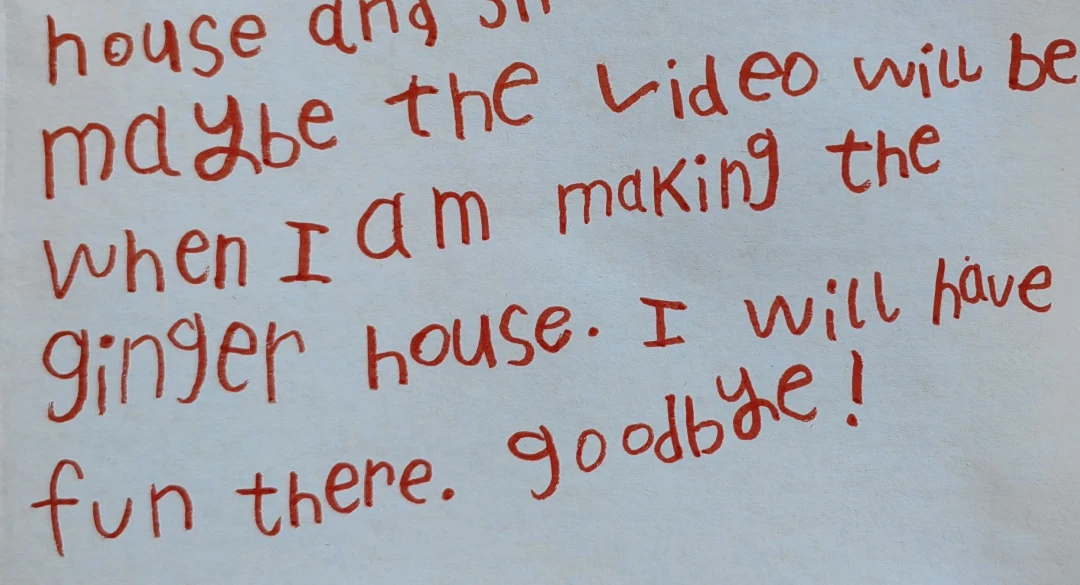 house and
maybe the video will be
when I am making the
ginger house. I will have
fun there. goodbye!